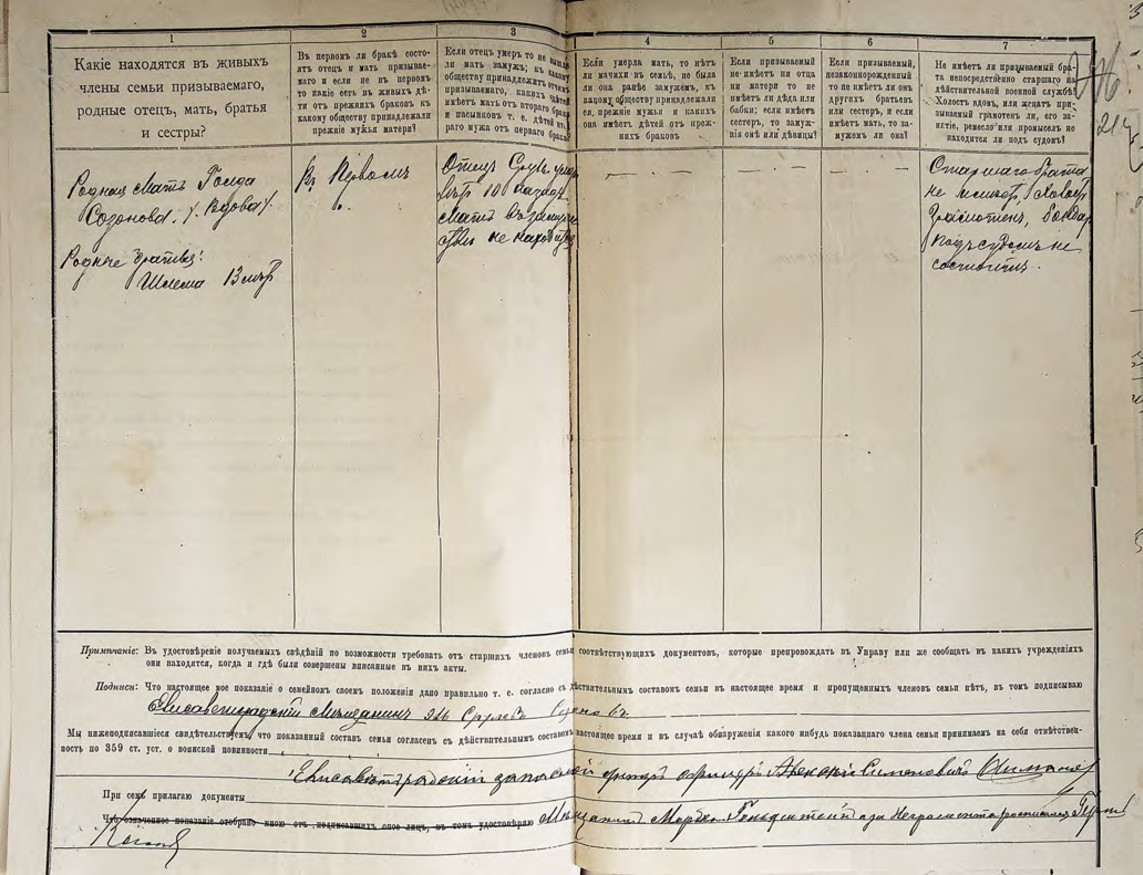 1
Какіе находятся въ живыхъ
члены семьи призываемаго,
родные отецъ, мать, братья
и сестры?
2
Въ первомъ ли бракѣ состо-
ятъ отецъ и мать призывае-
маго и если не въ первомъ
то какіе есть въ живыхъ дѣ-
ти отъ прежнихъ браковъ къ
какому обществу принадлежали
прежніе мужья матери?
3
Если отецъ умеръ то не вышла
ли мать замужъ; къ какому
обществу принадлежитъ отчимъ
призываемаго, какихъ дѣтей
имѣетъ мать отъ втораго брака
и пасынковъ т. е. дѣтей вто-
раго мужа отъ перваго брака?
4
Если умерла мать, то нѣтъ
ли мачихи въ семьѣ, не была
ли она ранѣе замужемъ, къ
какому обществу принадлежали
ея, прежніе мужья и какихъ
она имѣетъ дѣтей отъ преж-
нихъ браковъ
5
Если призываемый
не имѣетъ ни отца
ни матери то не
имѣетъ ли дѣда или
бабки; если имѣетъ
сестеръ, то замуж-
нія онѣ или дѣвицы?
6
Если призываемый,
незаконнорожденный
то не имѣетъ ли онъ
другихъ братьевъ
или сестеръ, и если
имѣетъ мать, то за-
мужемъ ли она?
7
Не имѣетъ ли призываемый бра-
та непосредственно старшаго на
дѣйствительной военной службѣ?
Холостъ вдовъ, или женатъ при-
зываемый грамотенъ ли, его за-
нятіе, ремесло или промыселъ не
находится ли подъ судомъ?
Родная Мать
Созонова. /. Вдова/.
Родные братья:
Шлема 13 лѣтъ
Въ Первомъ
Отецъ Сруль
лѣтъ 10 назадъ
Мать въ
не находится
Старшаго брата
не имѣетъ, Холостъ
Грамотенъ, бондарь
Подъ судомъ не
состоитъ.
Примѣчаніе: Въ удостовѣреніе получаемыхъ свѣдѣній по возможности требовать отъ старшихъ членовъ семьи соотвѣтствующихъ документовъ, которые препровождать въ Управу или же сообщать въ какихъ учрежденіяхъ
они находятся, когда и гдѣ были совершены вписанные въ нихъ акты.
Подписи: Что настоящее мое показаніе о семейномъ своемъ положеніи дано правильно т. е. согласно съ дѣйствительнымъ составомъ семьи въ настоящее время и пропущенныхъ членовъ семьи нѣтъ, въ томъ подписываю
Елисаветградскій Мѣщанинъ Эль Срулевъ
Мы нижеподписавшіеся свидѣтельствуемъ, что показанный составъ семьи согласенъ съ дѣйствительнымъ составомъ настоящее время и въ случаѣ обнаруженія какого нибудь показаннаго члена семьи принимаемъ на себя отвѣтствен-
ность по 359 ст. уст. о воинской повинности
Елисаветградскій запасной унтеръ офицеръ Семеновичъ
При семъ прилагаю документы
Что означенное показаніе отобрано мною отъ подписавшихъ оное лицъ, въ томъ удостовѣряю Мѣщанинъ